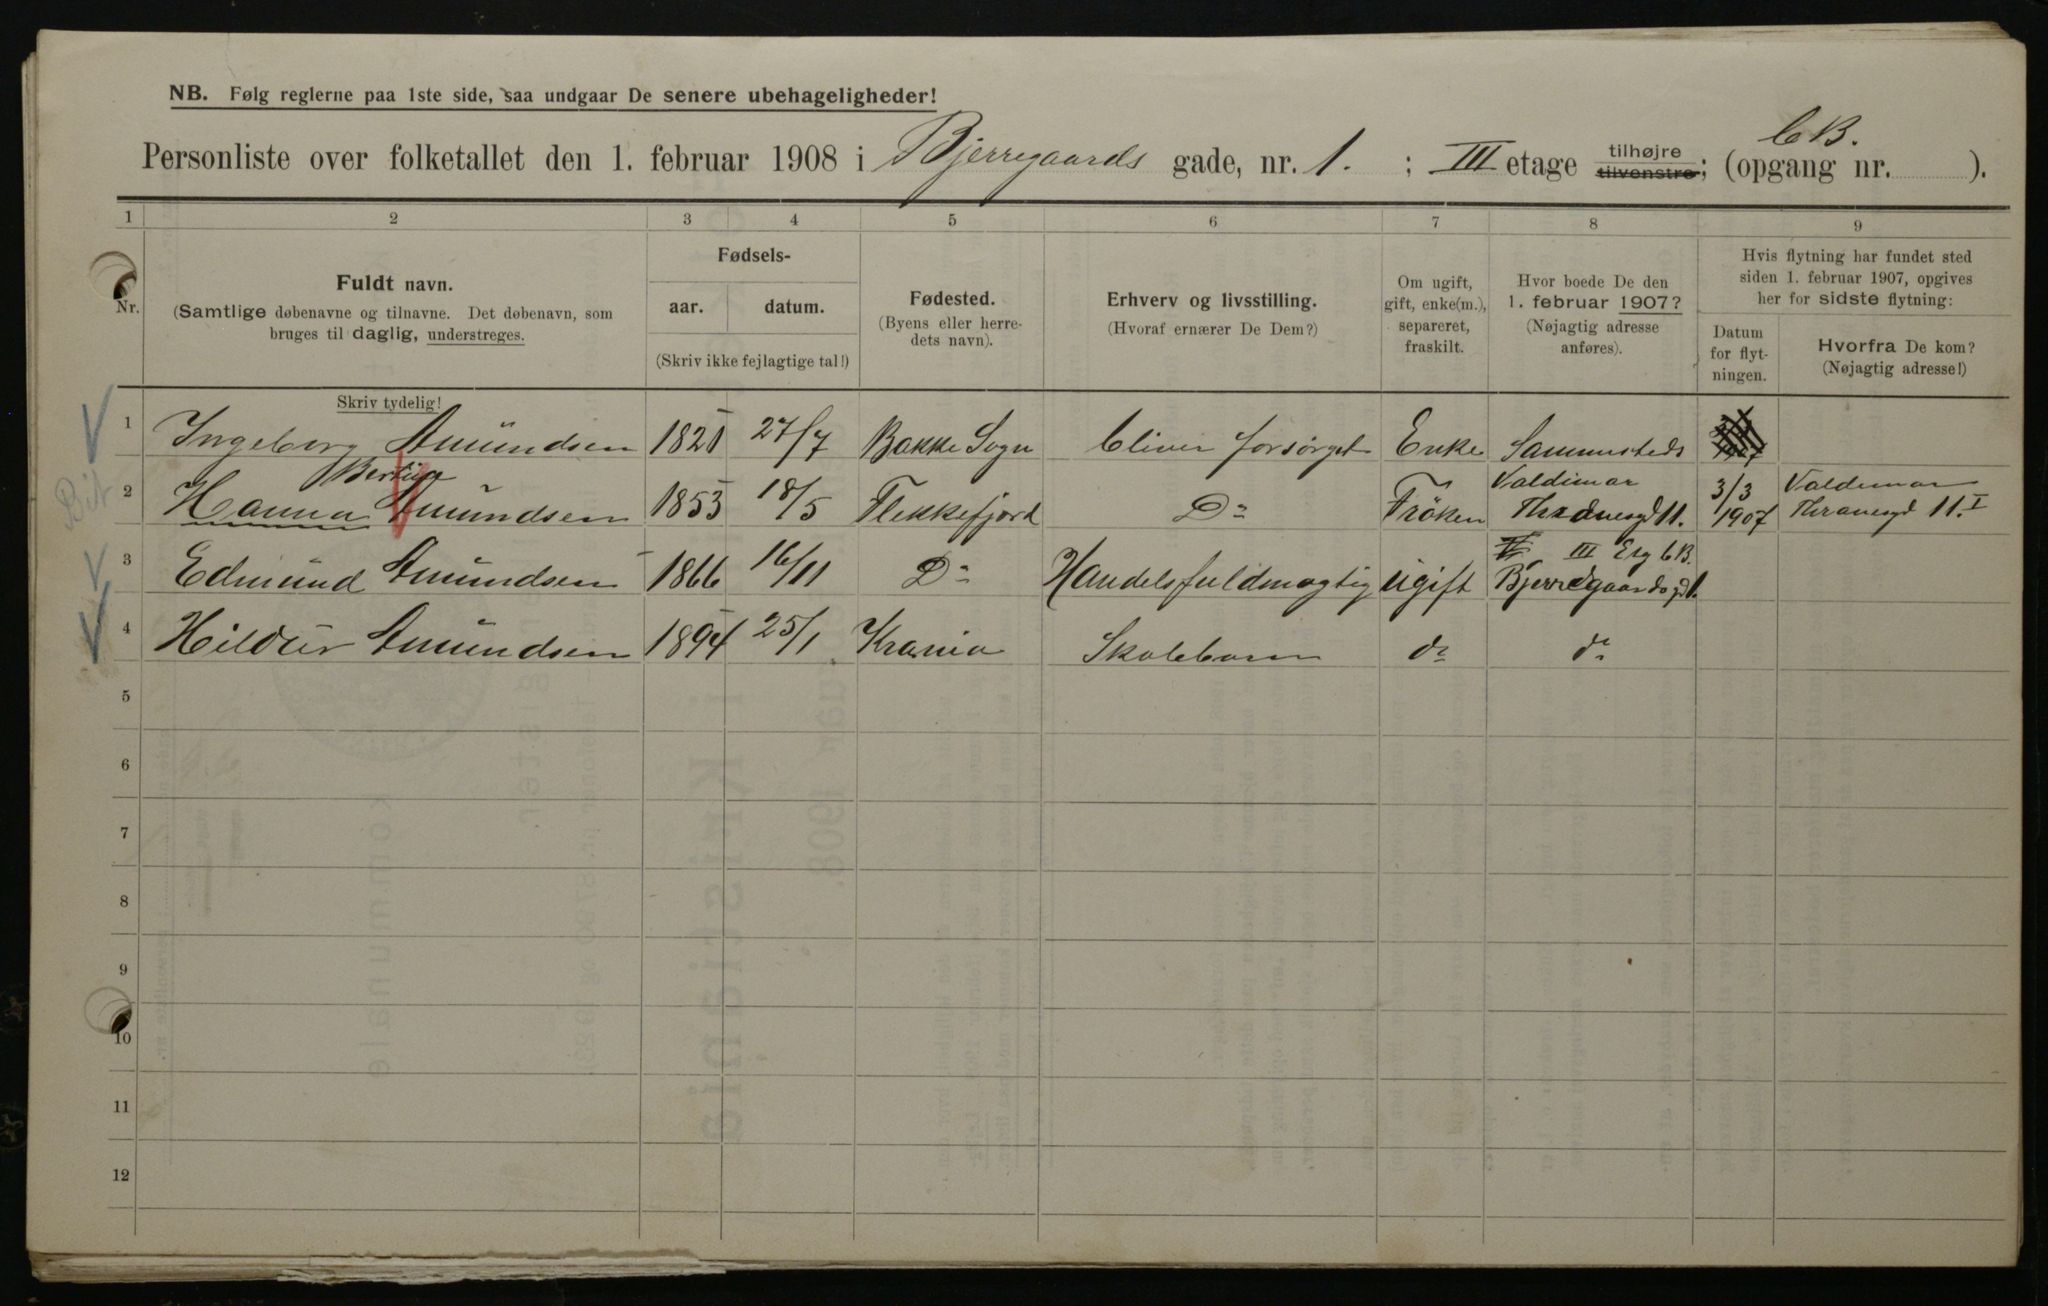 NB. Følg reglerne paa 1ste side, saa undgaar De senere ubehageligheder!
Personliste over folketallet den 1. februar 1908 i Bjerregaards gade, nr. 1. ; III etage tilhøjre tilvenstre; (opgang nr. ). C B.
1 2 3 4 5 6 7 8 9
Nr.
Fuldt navn.
(Samtlige døbenavne og tilnavne. Det døbenavn, som
bruges til daglig, understreges.
Fødsels-
aar. datum.
(Skriv ikke fejlagtige tal!)
Fødested.
(Byens eller herre-
dets navn).
Erhverv og livsstilling.
(Hvoraf ernærer De Dem?)
Om ugift,
gift, enke(m.),
separeret,
fraskilt.
Hvor boede De den
1. februar 1907?
(Nøjagtig adresse
anføres).
Hvis flytning har fundet sted
siden 1. februar 1907, opgives
her for sidste flytning:
Datum
for flyt-
ningen.
Hvorfra De kom?
(Nøjagtig adresse!)
Skriv tydelig!
1 Ingeborg Amundsen 1821 27/7 Bakke Sogn bliver forsørget Enke Sammesteds
Bertine Valdimar 3/3 Valdemar
2 Hanna Amundsen 1853 18/5 Flekkefjord Do Frøken Thranesgd 11. 1907 Thranesgd 11. I
III Etg C B.
3 Edmund Amundsen 1866 16/11 Do Handelsfuldmægtig ugift Bjerregaardsgd 1.
4 Hildur Amundsen 1894 25/1 Krania Skolebarn do do
5
6
7
8
9
10
11
12